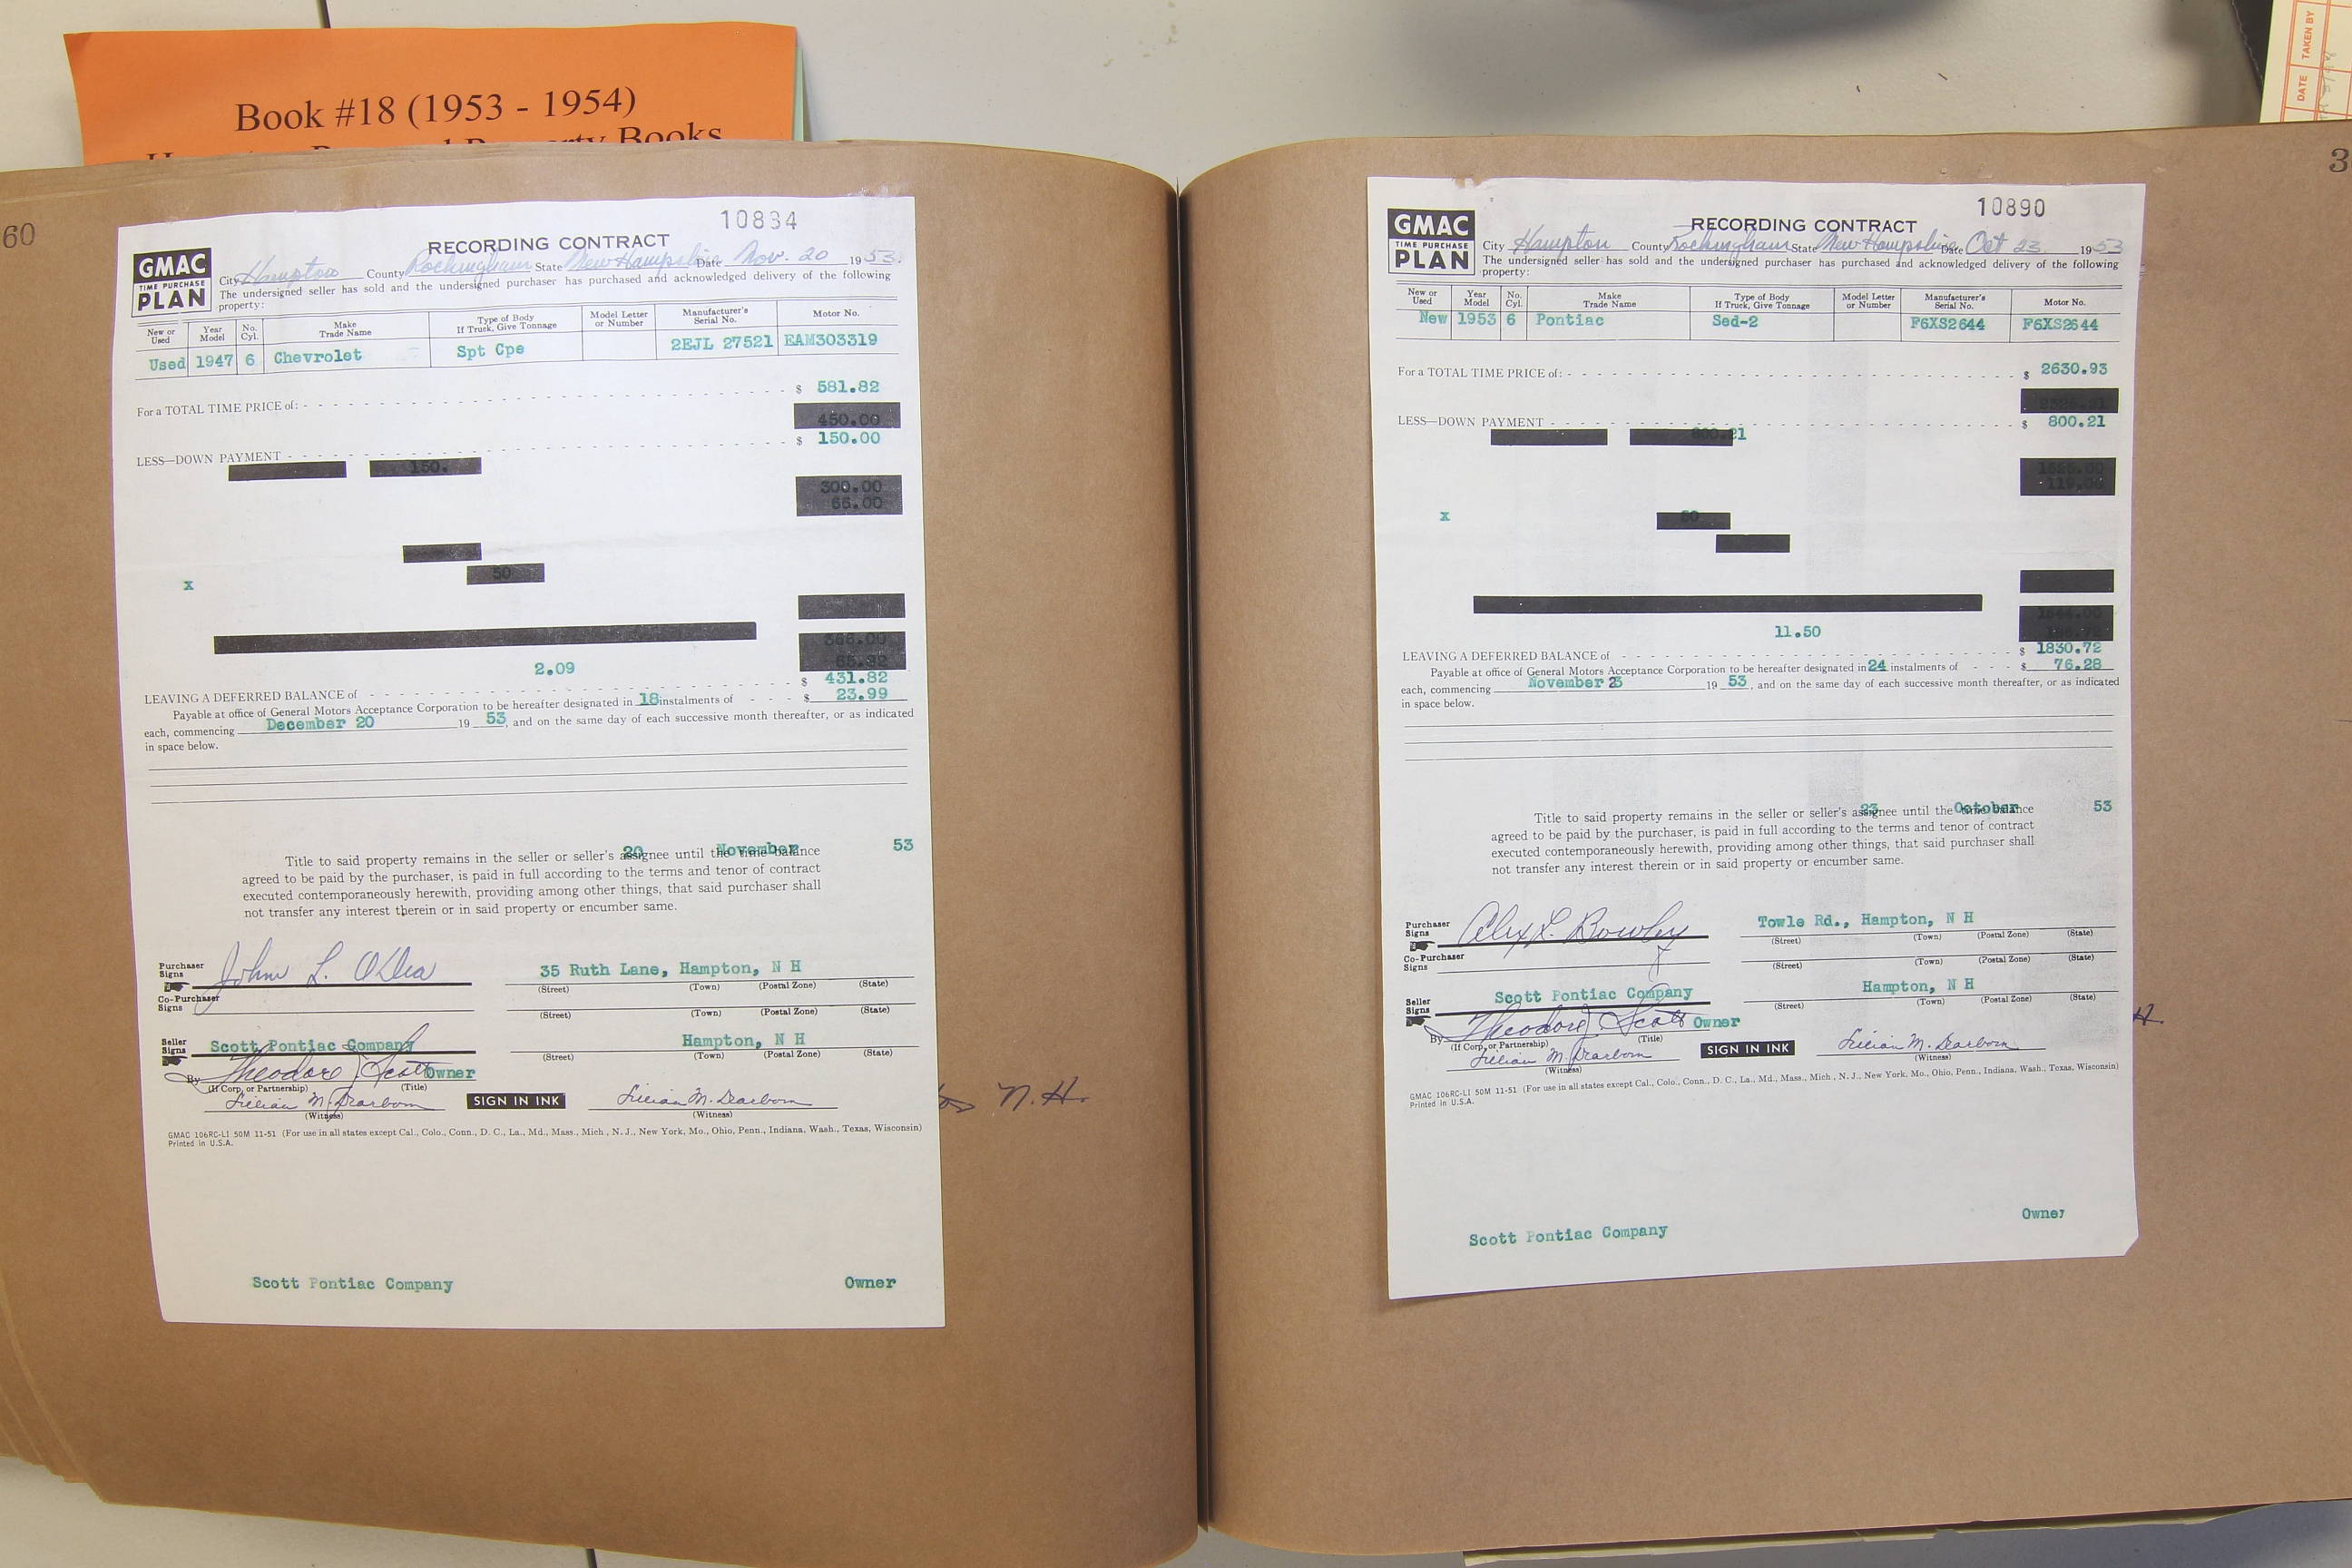 Book #18 (1953 - 1954)
DATE TAKEN BY
60
10834
GMAC
TIME PURCHASE
PLAN
RECORDING CONTRACT
City Hampton County Rockingham State New Hampshire Date Nov. 20 1953.
The undersigned seller has sold and the undersigned purchaser has purchased and acknowledged delivery of the following
property:
New or Used Year Model No. Cyl. Make Trade Name Type of Body If Truck, Give Tonnage Model Letter or Number Manufacturer's Serial No. Motor No.
Used 1947 6 Chevrolet Spt Cpe 2EJL 27521 EAM303319
For a TOTAL TIME PRICE of: $ 581.82
450.00
LESS—DOWN PAYMENT $ 150.00
150.
300.00
66.00
50
x
366.00
65.82
2.09
LEAVING A DEFERRED BALANCE of $ 431.82
Payable at office of General Motors Acceptance Corporation to be hereafter designated in 18 instalments of $ 23.99
each, commencing December 20 19 53, and on the same day of each successive month thereafter, or as indicated
in space below.
20 November 53
Title to said property remains in the seller or seller's assignee until the time balance
agreed to be paid by the purchaser, is paid in full according to the terms and tenor of contract
executed contemporaneously herewith, providing among other things, that said purchaser shall
not transfer any interest therein or in said property or encumber same.
Purchaser Signs John L. O'Dea 35 Ruth Lane, Hampton, N H
(Street) (Town) (Postal Zone) (State)
Co-Purchaser Signs
(Street) (Town) (Postal Zone) (State)
Seller Signs Scott Pontiac Company Hampton, N H
(Street) (Town) (Postal Zone) (State)
By Theodore J. Scott Owner
(If Corp, or Partnership) (Title)
Lillian M. Dearborn SIGN IN INK Lillian M. Dearborn
(Witness) (Witness)
N.H.
GMAC 106RC-LI 50M 11-51 (For use in all states except Cal., Colo., Conn., D. C., La., Md., Mass., Mich., N. J., New York, Mo., Ohio, Penn., Indiana, Wash., Texas, Wisconsin)
Printed in U.S.A.
Scott Pontiac Company Owner
3
10890
GMAC
TIME PURCHASE
PLAN
RECORDING CONTRACT
City Hampton County Rockingham State New Hampshire Date Oct 23 1953
The undersigned seller has sold and the undersigned purchaser has purchased and acknowledged delivery of the following
property:
New or Used Year Model No. Cyl. Make Trade Name Type of Body If Truck, Give Tonnage Model Letter or Number Manufacturer's Serial No. Motor No.
New 1953 6 Pontiac Sed-2 P6XS2644 P6XS2644
For a TOTAL TIME PRICE of: $ 2630.93
LESS—DOWN PAYMENT $ 800.21
800.21
119.00
x
50
11.50
LEAVING A DEFERRED BALANCE of $ 1830.72
Payable at office of General Motors Acceptance Corporation to be hereafter designated in 24 instalments of $ 76.28
each, commencing November 23 19 53, and on the same day of each successive month thereafter, or as indicated
in space below.
23 October 53
Title to said property remains in the seller or seller's assignee until the time balance
agreed to be paid by the purchaser, is paid in full according to the terms and tenor of contract
executed contemporaneously herewith, providing among other things, that said purchaser shall
not transfer any interest therein or in said property or encumber same.
Purchaser Signs Alex L. Bowley Towle Rd., Hampton, N H
(Street) (Town) (Postal Zone) (State)
Co-Purchaser Signs
(Street) (Town) (Postal Zone) (State)
Seller Signs Scott Pontiac Company Hampton, N H
(Street) (Town) (Postal Zone) (State)
By Theodore J. Scott Owner
H.
(If Corp, or Partnership) (Title)
Lillian M. Dearborn SIGN IN INK Lillian M. Dearborn
(Witness) (Witness)
GMAC 106RC-LI 50M 11-51 (For use in all states except Cal., Colo., Conn., D. C., La., Md., Mass., Mich., N. J., New York, Mo., Ohio, Penn., Indiana, Wash., Texas, Wisconsin)
Printed in U.S.A.
Scott Pontiac Company Owner